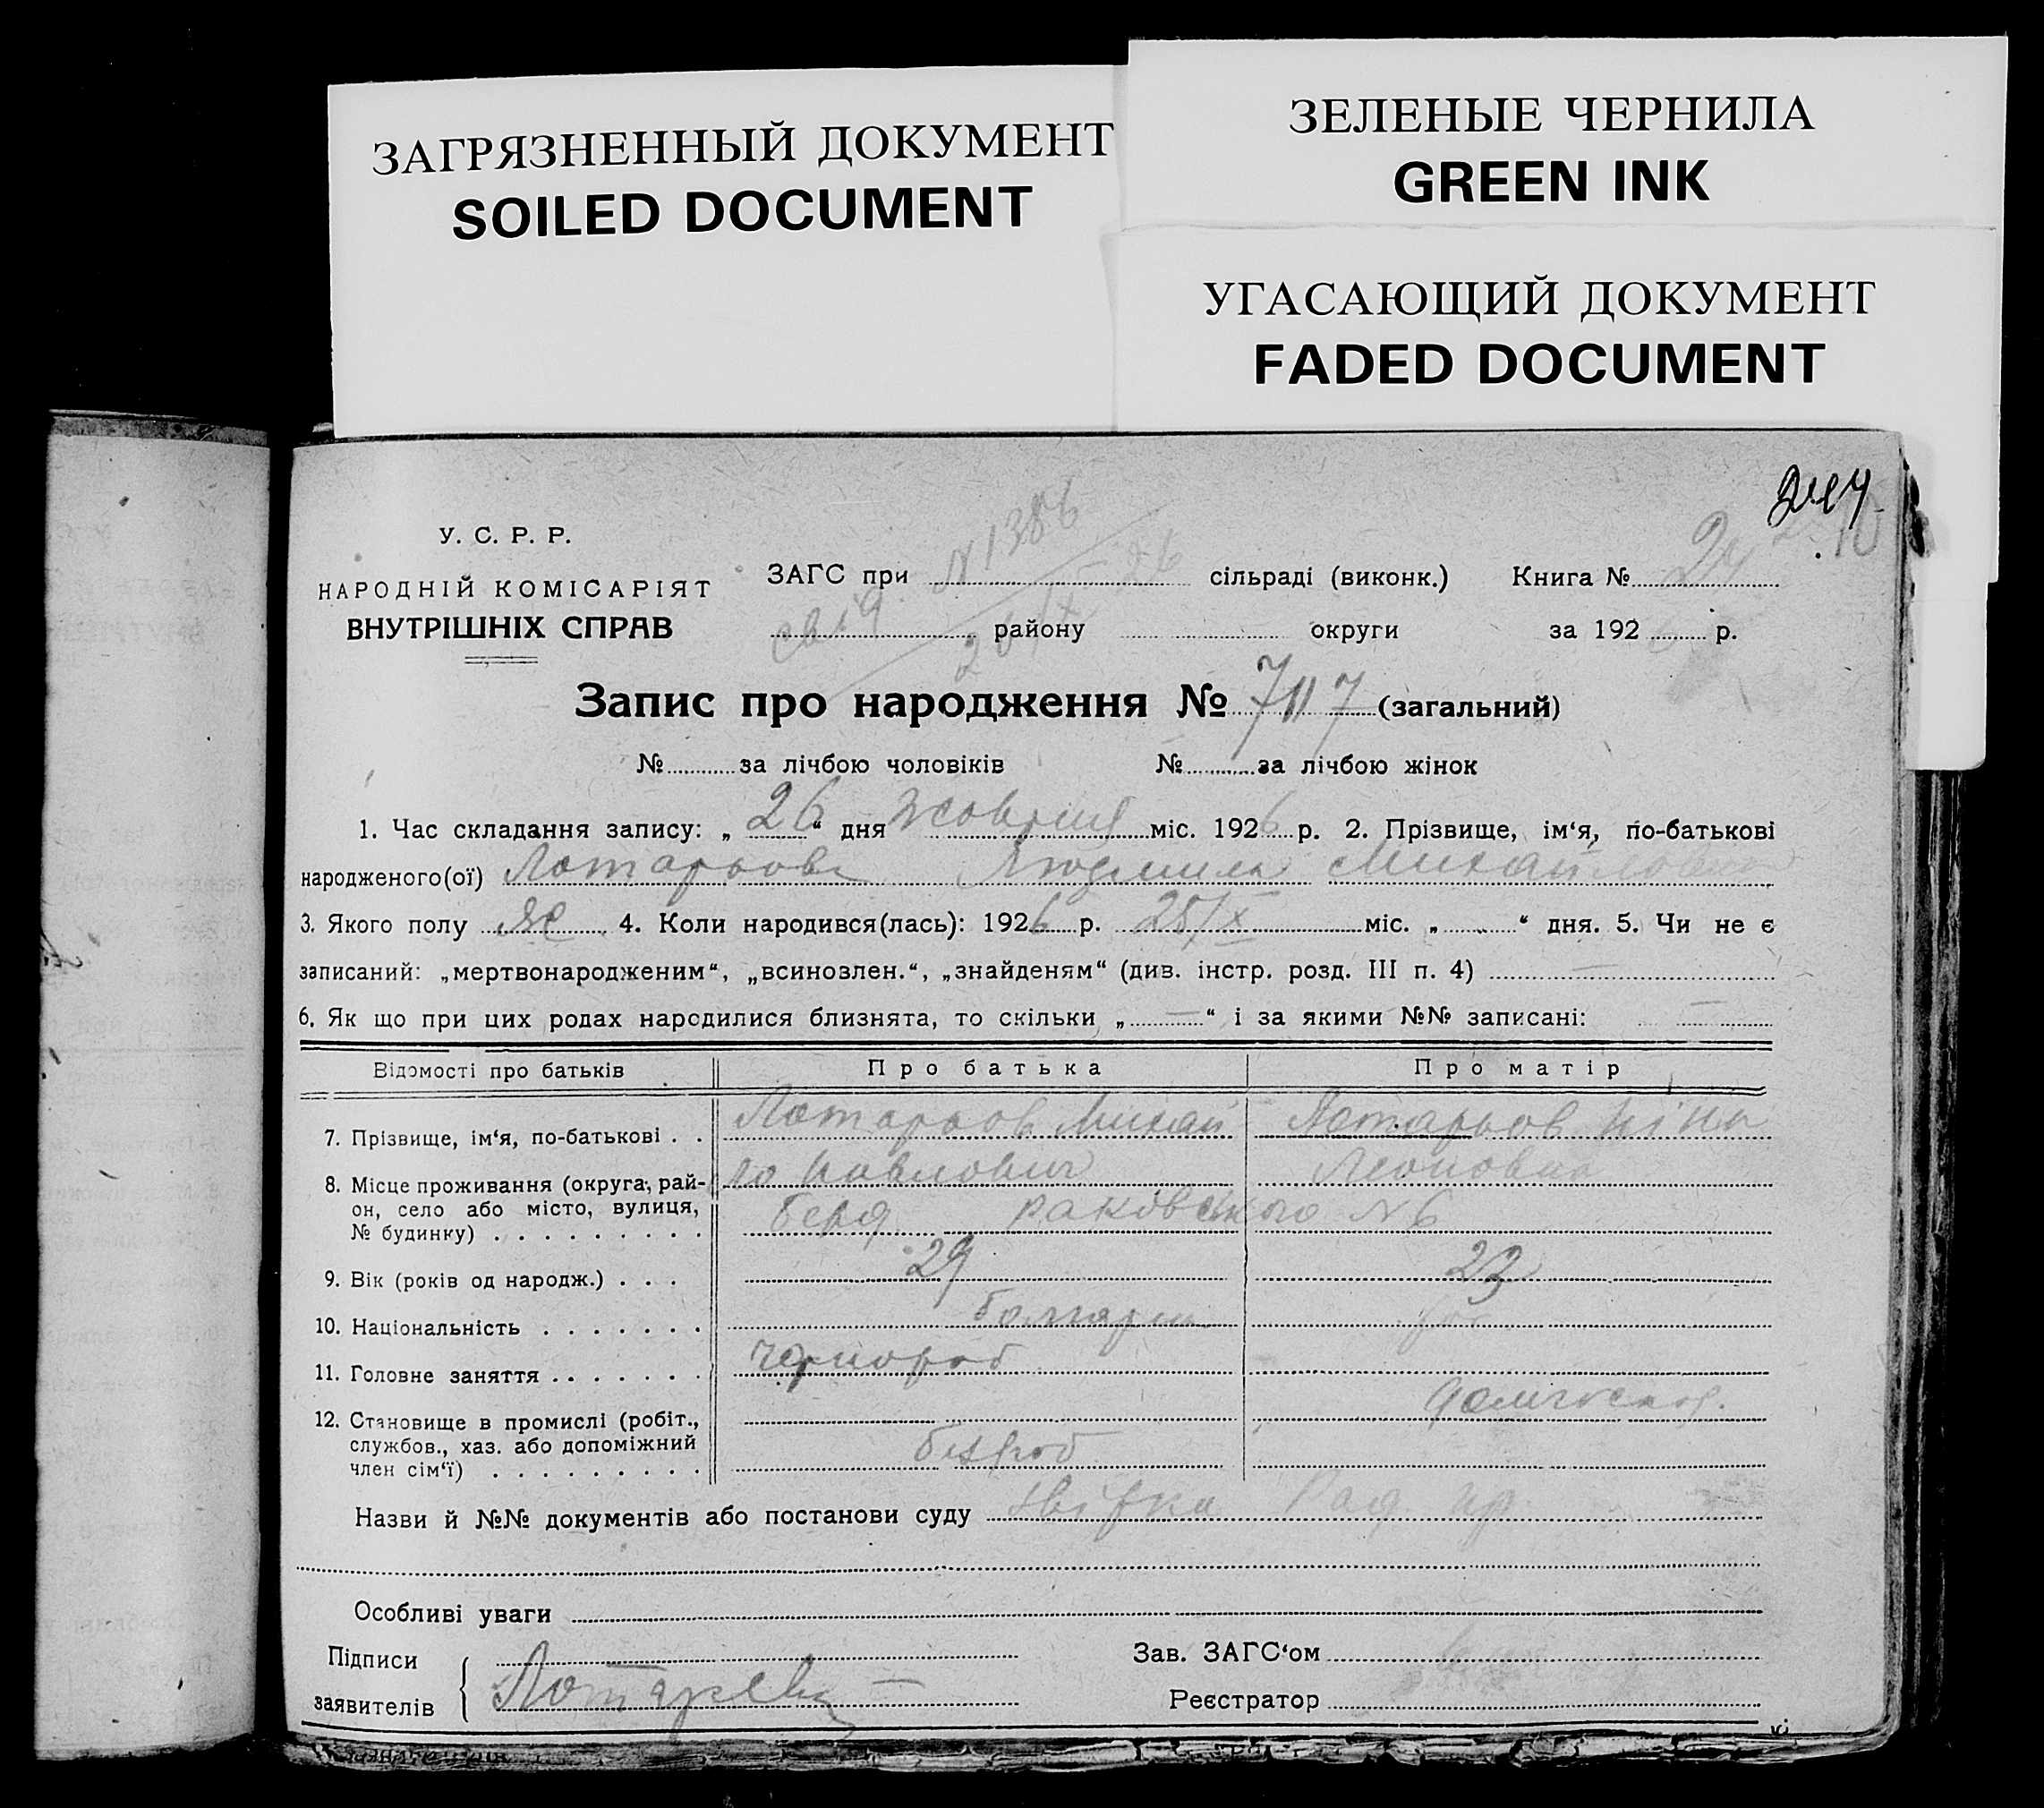 ЗАГРЯЗНЕННЫЙ ДОКУМЕНТ
SOILED DOCUMENT
ЗЕЛЕНЫЕ ЧЕРНИЛА
GREEN INK
УГАСАЮЩИЙ ДОКУМЕНТ
FADED DOCUMENT
У. С. Р. Р.
НАРОДНІЙ КОМІСАРІЯТ
ВНУТРІШНІХ СПРАВ
N 1386
ЗАГС при сільраді (виконк.) Книга № 24
району округи за 192 р.
Запис про народження № 7117 (загальний)
№ за лічбою чоловіків № за лічбою жінок
1. Час складання запису: „ 26 “ дня жовтня міс. 1926 р. 2. Прізвище, ім‘я, по-батькові
народженого(ої) Лотарьова Людмила Михайловна
3. Якого полу ж 4. Коли народився(лась): 1926 р. 25/X міс. „ “ дня. 5. Чи не є
записаний: „мертвонародженим“, „всиновлен.“, „знайденям“ (див. інстр. розд. III п. 4) —
6. Як що при цих родах народилися близнята, то скільки „ — “ і за якими №№ записані: —
Відомості про батьків Про батька Про матір
7. Прізвище, ім‘я, по-батькові . . Лотарьов Михай Лотарьов Ніна
ло Павлович Леоновна
8. Місце проживання (округа, рай-
он, село або місто, вулиця,
№ будинку) . . . . . . . . . Раковського N 6
9. Вік (років од народж.) . . . 29 23
10. Національність . . . . . . .
11. Головне заняття . . . . . . . чорнороб
домгоспод.
12. Становище в промислі (робіт.,
службов., хаз. або допоміжний
член сім‘ї) . . . . . . . . . безроб
Назви й №№ документів або постанови суду
Особливі уваги
Підписи Зав. ЗАГС‘ом
заявителів Лотарева Реєстратор